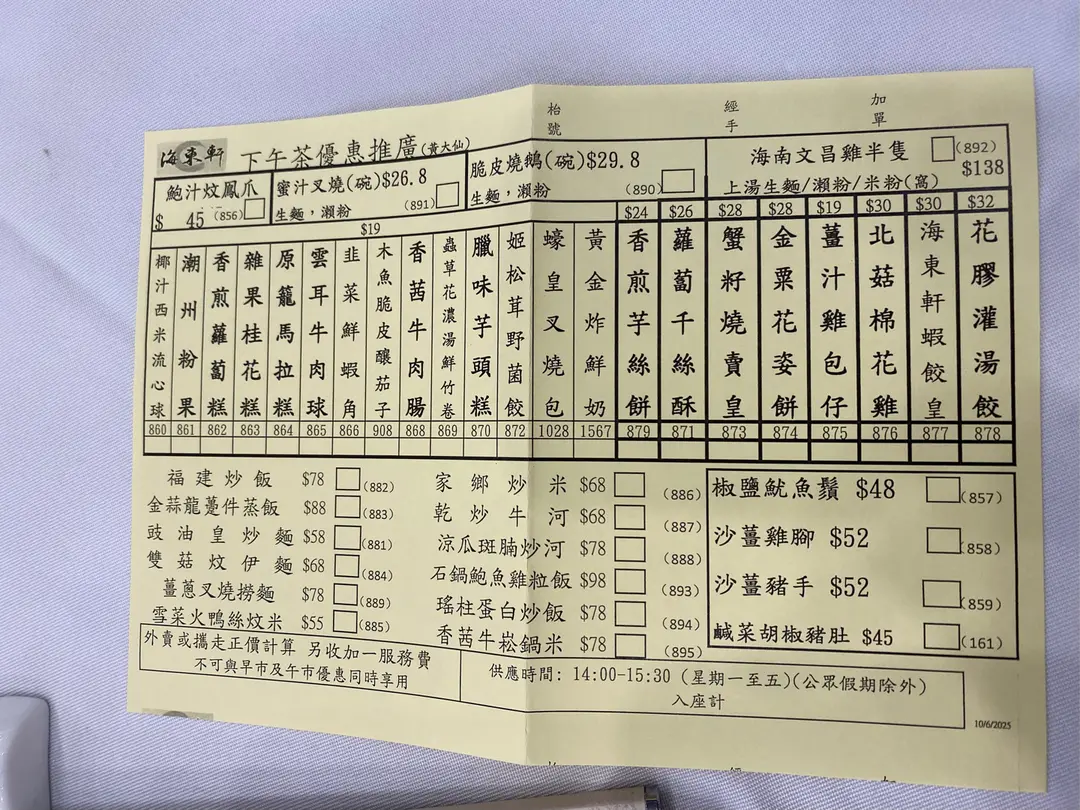 枱號 經手 加單
海東軒 下午茶優惠推廣(黃大仙)
鮑汁炆鳳爪
$ 45 (856)
蜜汁叉燒(碗)$26.8
生麵，瀨粉 (891)
脆皮燒鵝(碗)$29.8
生麵，瀨粉 (890)
海南文昌雞半隻 (892)
$138
上湯生麵/瀨粉/米粉(窩)
$19
椰汁西米流心球 860
潮州粉果 861
香煎蘿蔔糕 862
雜果桂花糕 863
原籠馬拉糕 864
雲耳牛肉球 865
韭菜鮮蝦角 866
木魚脆皮釀茄子 908
香茜牛肉腸 868
蟲草花濃湯鮮竹卷 869
臘味芋頭糕 870
姬松茸野菌餃 872
蠔皇叉燒包 1028
黃金炸鮮奶 1567
$24 香煎芋絲餅 879
$26 蘿蔔千絲酥 871
$28 蟹籽燒賣皇 873
$28 金粟花姿餅 874
$19 薑汁雞包仔 875
$30 北菇棉花雞 876
$30 海東軒蝦餃皇 877
$32 花膠灌湯餃 878
福建炒飯 $78 (882)
金蒜龍躉件蒸飯 $88 (883)
豉油皇炒麵 $58 (881)
雙菇炆伊麵 $68 (884)
薑蔥叉燒撈麵 $78 (889)
雪菜火鴨絲炆米 $55 (885)
家鄉炒米 $68 (886)
乾炒牛河 $68 (887)
涼瓜斑腩炒河 $78 (888)
石鍋鮑魚雞粒飯 $98 (893)
瑤柱蛋白炒飯 $78 (894)
香茜牛崧鍋米 $78 (895)
椒鹽魷魚鬚 $48 (857)
沙薑雞腳 $52 (858)
沙薑豬手 $52 (859)
鹹菜胡椒豬肚 $45 (161)
外賣或攜走正價計算 另收加一服務費
不可與早市及午市優惠同時享用
供應時間: 14:00-15:30 (星期一至五)(公眾假期除外)
入座計
10/6/2025